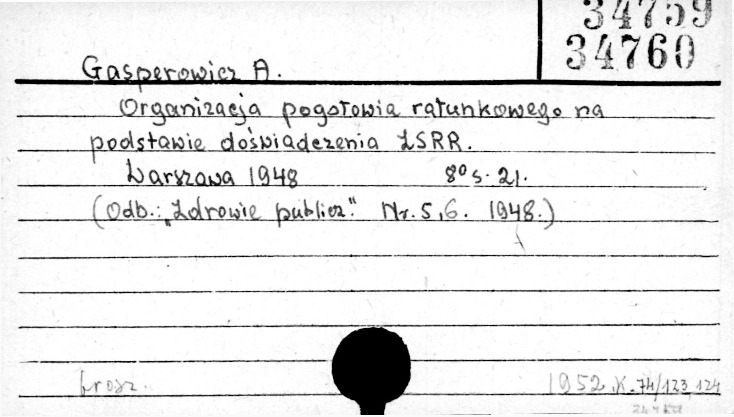 34759
34760
Gasperowicz A.
Organizacja pogotowia ratunkowego na
podstawie doświadczenia ZSRR.
Warszawa 1948 8° s. 21.
(Odb.: „Zdrowie publicz." Nr. 5, 6. 1948.)
brosz. 1952.K.74/123,124